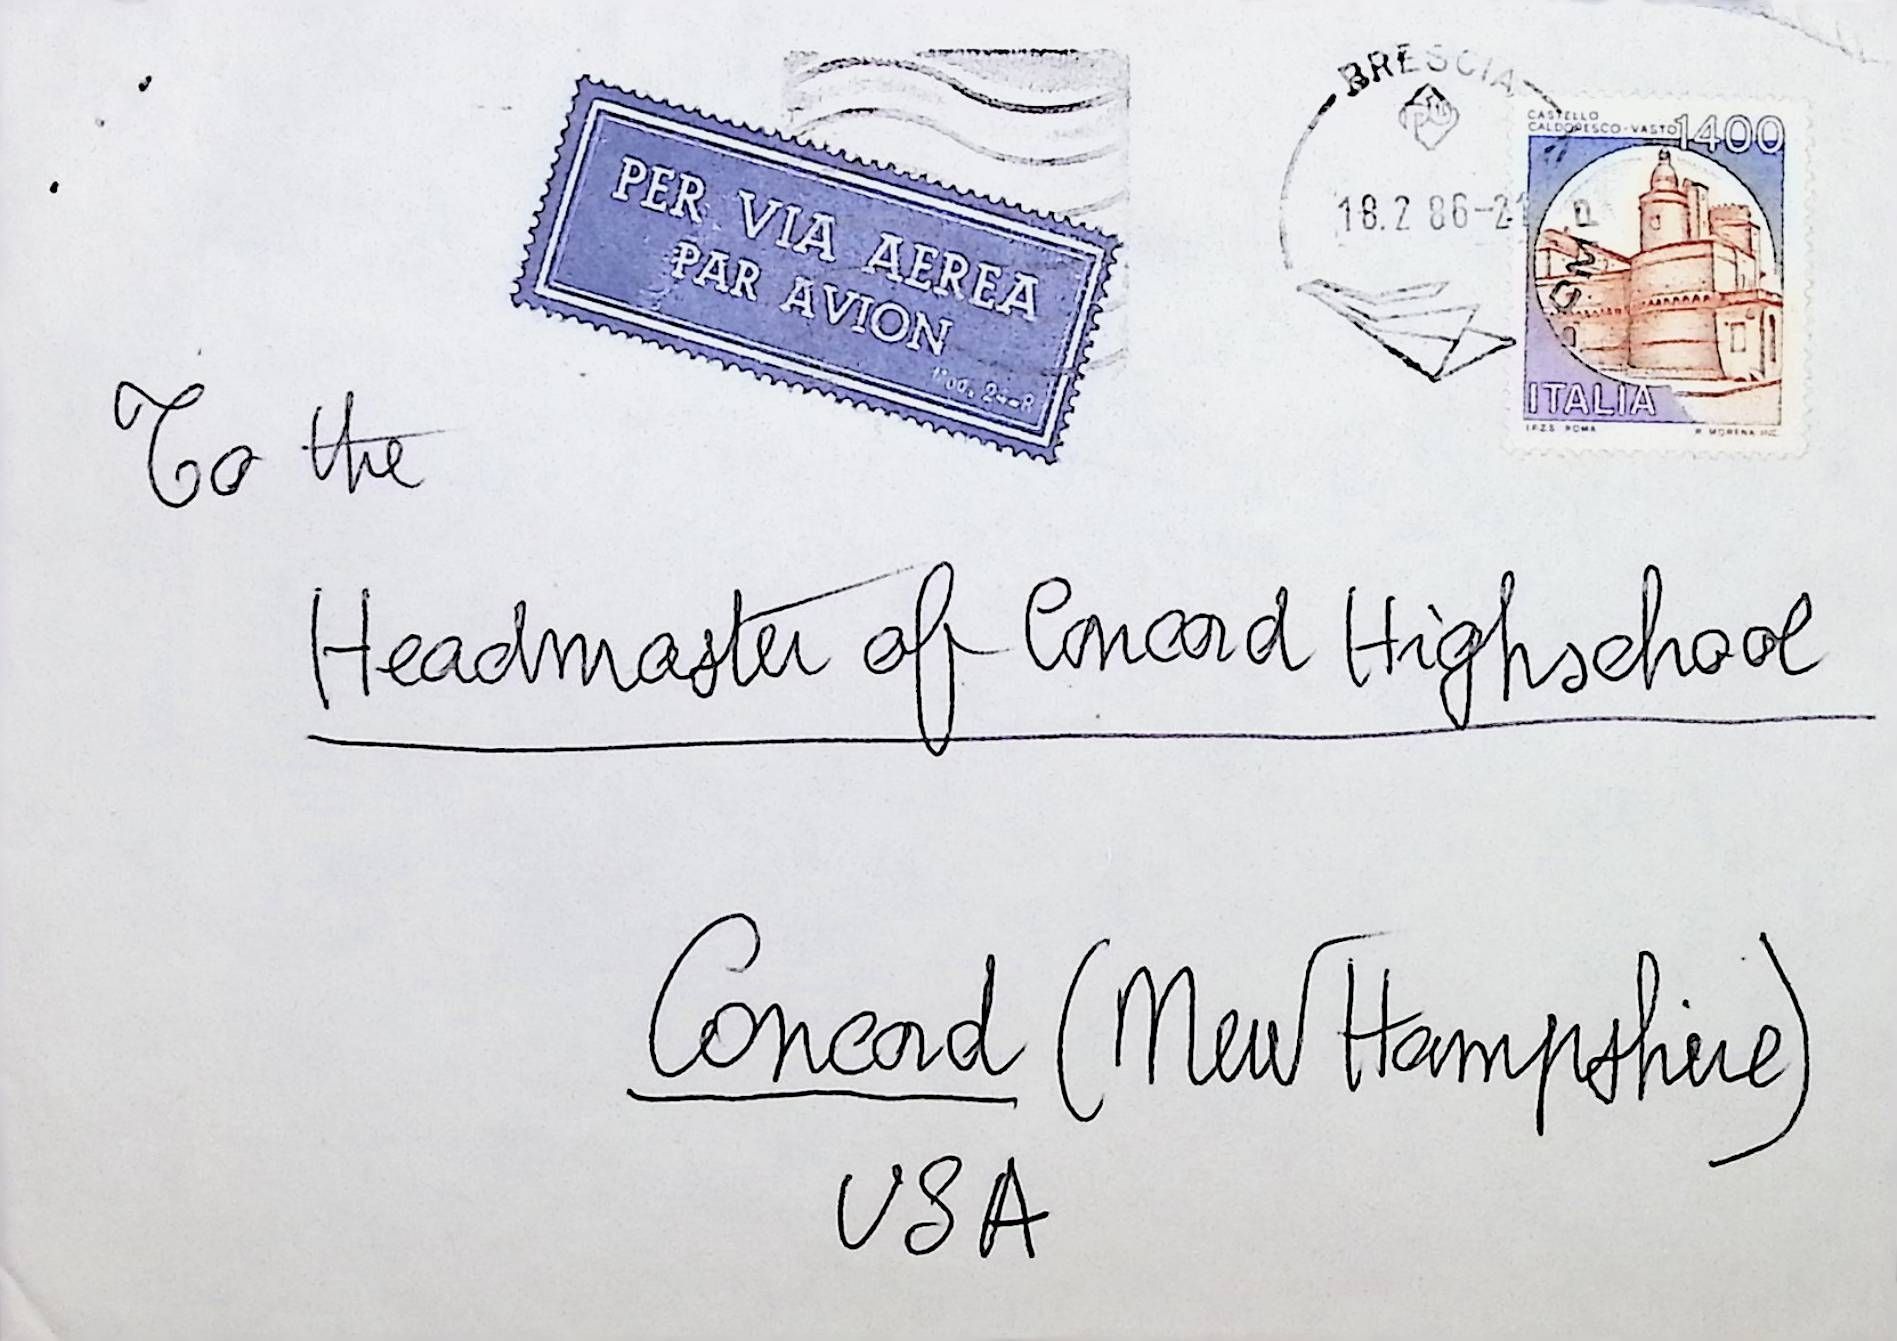 BRESCIA
18.2 86-21
CMP
CASTELLO
CALDORESCO-VASTO
1400
ITALIA
I.P.Z.S. ROMA
PER VIA AEREA
PAR AVION
To the
Headmaster of Concord Highschool
Concord (New Hampshire)
USA